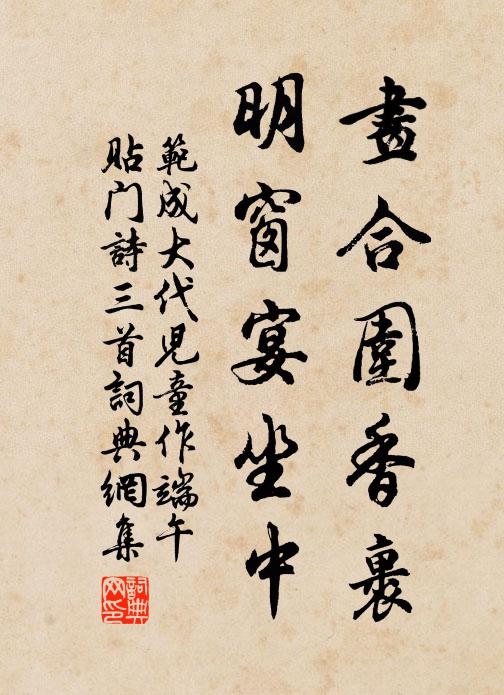 畫合圍香裏
明窗宴坐中
範成大代児童作端午
貼门詩三首詞典網集
詞典網印